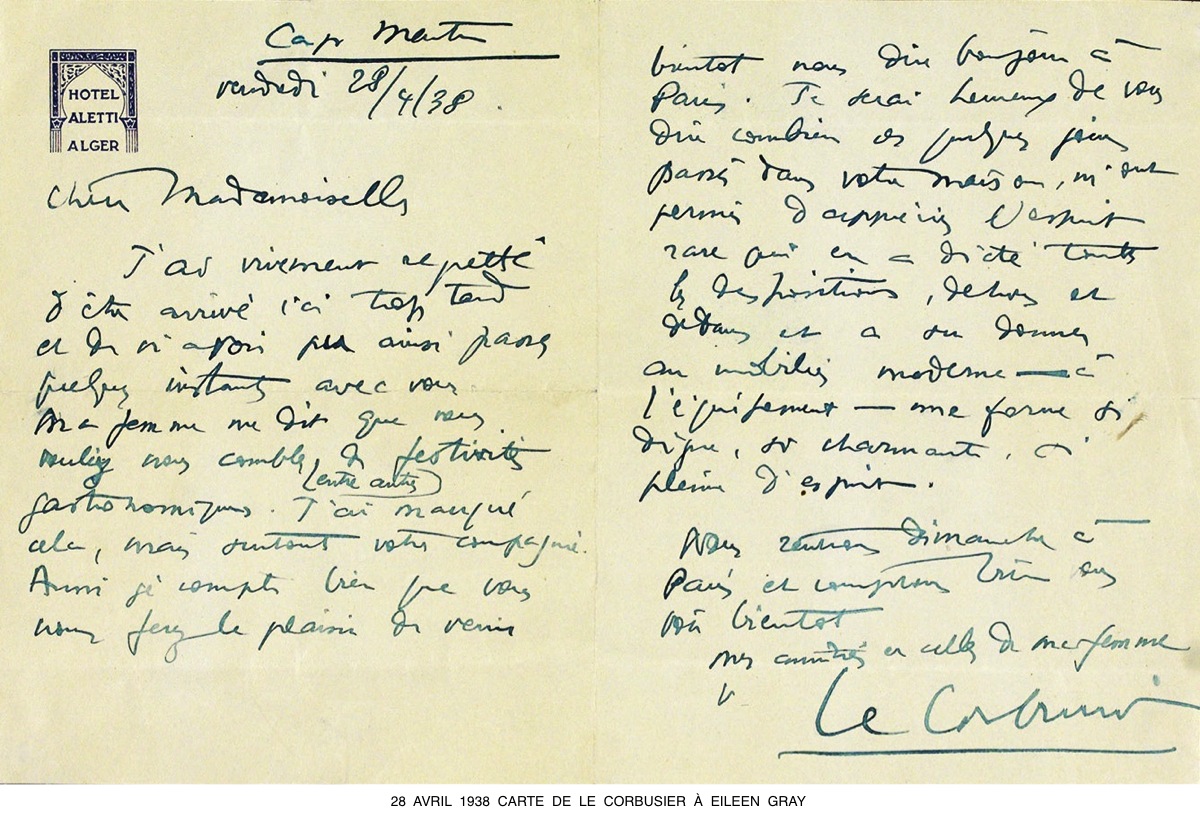 HOTEL
ALETTI
ALGER
Cap Martin
vendredi 28/4/38.
Chère Mademoiselle
J'ai vivement regretté
d'être arrivé ici trop tard
et de n'avoir pu ainsi passer
quelques instants avec vous.
Ma femme me dit que vous
vouliez nous combler de festivités
(entre autres)
gastronomiques. J'ai manqué
cela, mais surtout votre compagnie.
Aussi je compte bien que vous
nous ferez le plaisir de venir
bientôt nous dire bonjour à
Paris. Je serai heureux de vous
dire combien ces quelques jours
passés dans votre maison, m'ont
permis d'apprécier l'esprit
rare qui en a dicté toutes
les dispositions, dehors et
dedans et a su donner
au mobilier moderne — à
l'équipement — une forme si
digne, si charmante, si
pleine d'esprit.
Nous rentrons dimanche à
Paris et comptons bien vous
voir bientôt
mes amitiés et celles de ma femme
v
Le Corbusier
28 AVRIL 1938 CARTE DE LE CORBUSIER À EILEEN GRAY